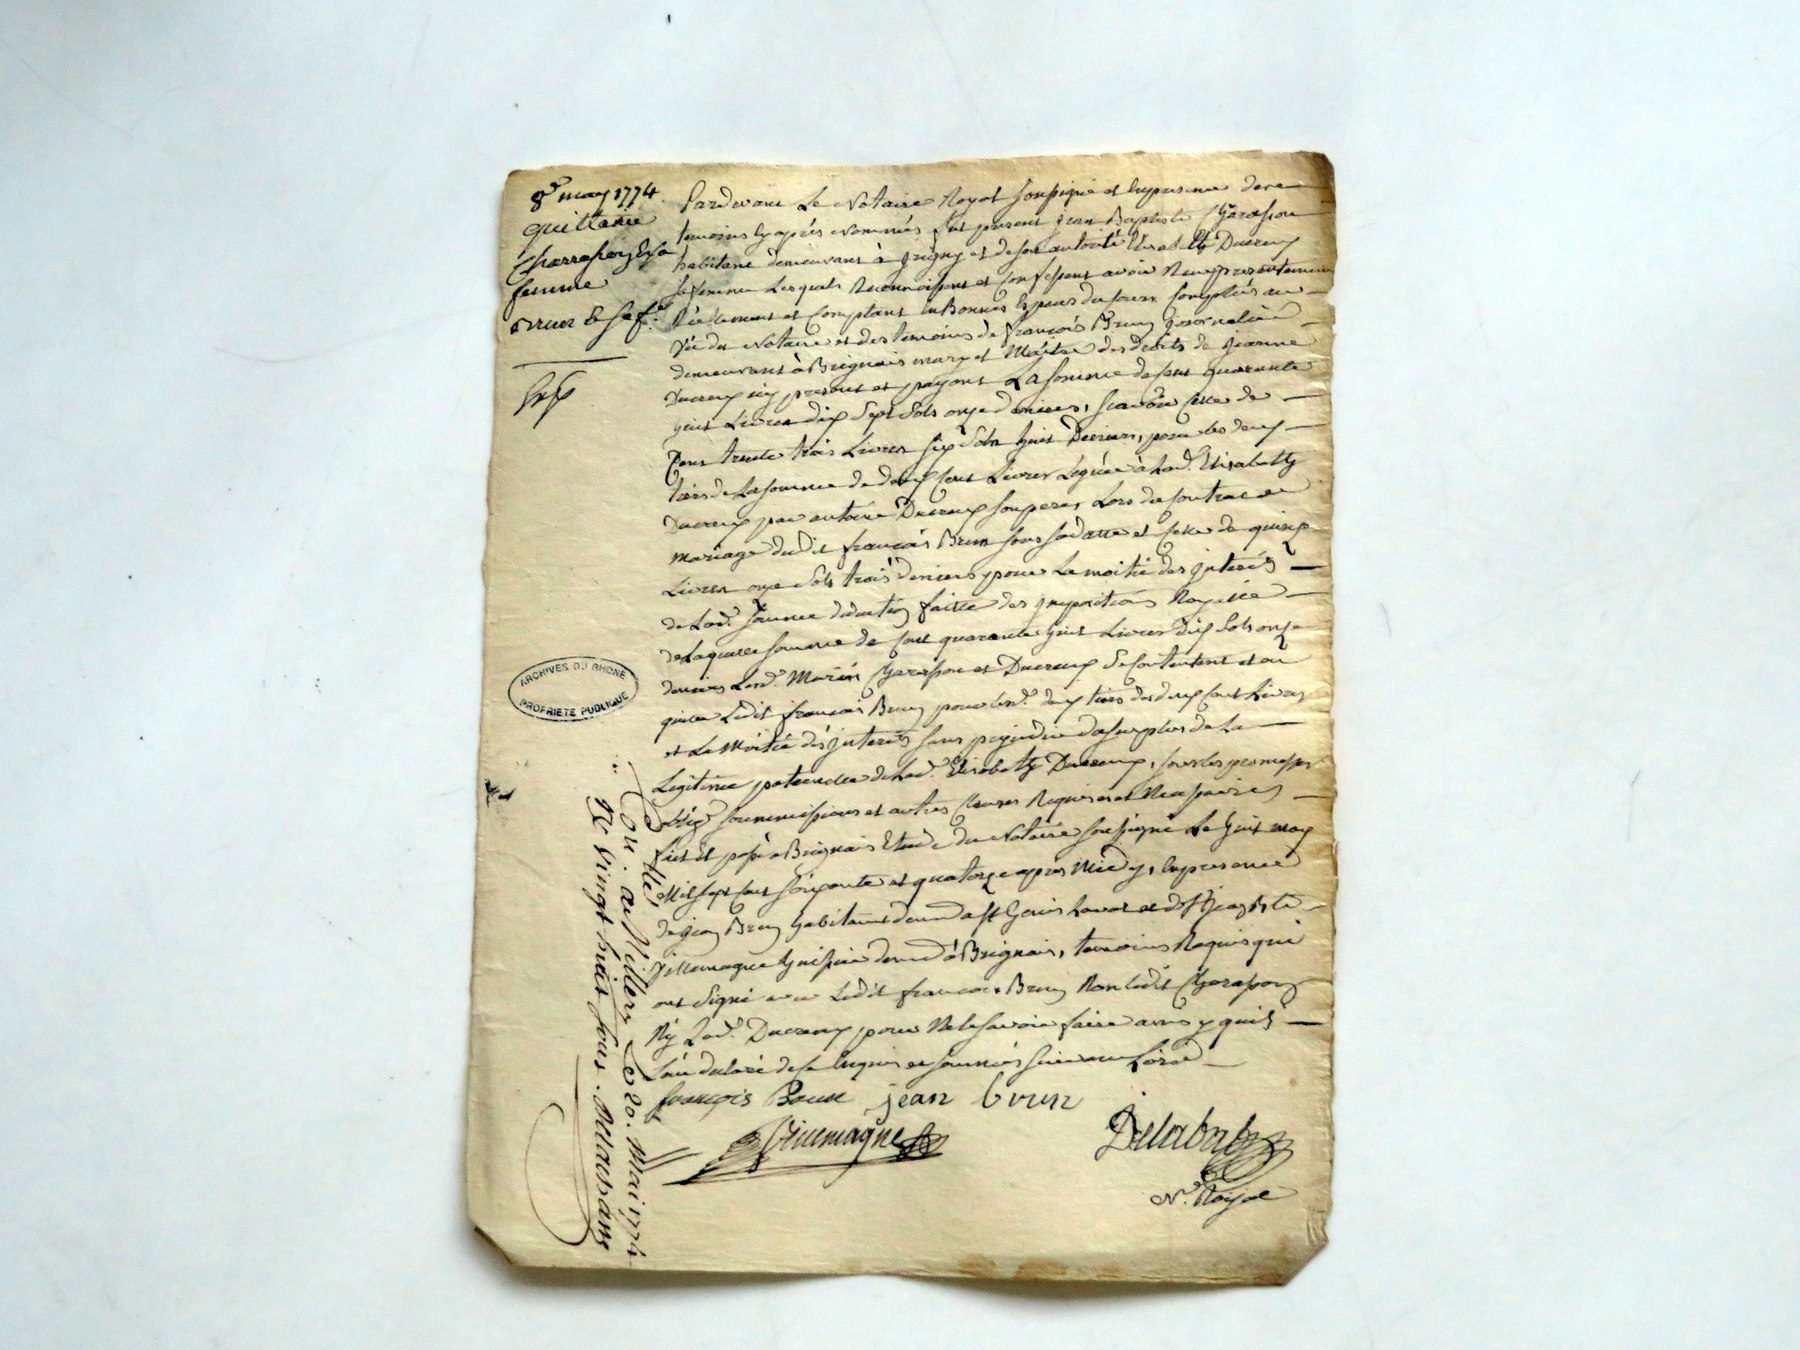 8e may 1774.
quittance
Charrasson & sa
femme
a brun & sa fe.
Pardevant Le Notaire Royal soussigné et En presence des
temoins Cy après Nommés fut present Jean Baptiste Charasson
habitant demeurant à Grigny et de son autorité Elisabeth Ducreux
sa femme Lesquels Reconnoissent et Confessent avoir Reçu presentement
Réellement et Comptant En Bonnes Especes du Cours Comptées au
Vû du Notaire et des temoins de françois Brun journalier
demeurant à Brignais mary et Maitre des droits de Jeanne
Ducreux icy present et payant La somme de Cent quarante
huit Livres dix Sept Sols onze deniers, Scavoir Celle de
Cent trente trois Livres Six Sols huit Deniers, pour les deux
tiers de La somme de deux Cent Livres Léguée à Lad. Elisabeth
Ducreux par antoine Ducreux son pere, Lors du Contrat de
mariage dudit françois Brun sous sa datte et Celle de quinze
Livres onze Sols trois deniers pour La moitié des interéts
de Lad. somme deduction faitte des impositions Royales
de Laquelle somme de Cent quarante huit Livres dix Sols onze
deniers Lesd. Mariés Charasson et Ducreux se Contentent et en
quitte Ledit françois Brun pour Lesd. deux tiers des deux Cent Livres
et La Moitié des interets sans prejudice du surplus de La
Legitime paternelle de Lad. Elisabeth Ducreux, sous les promesses
oblig. soummissions et autres Clauses Requises et Necessaires
fait et passé a Brignais Etude du Notaire soussigné Le huit may
Mil sept Cent soixante et quatorze après Midy, En presence
de Jean Brun habitant demt a St Genis Laval et de St Jean Bte
Villemagne huissier demt à Brignais, temoins Requis qui
ont Signé avec Ledit françois Brun Non Ledit Charasson
Ny Lad. Ducreux pour Ne Le savoir faire ainsy quils
L'ont declaré de ce Enquis et sommés suivant Lord.
françois Brun jean brun
Villemagne
N.re Royal
ARCHIVES DU RHONE
PROPRIÉTÉ PUBLIQUE
Conté. a Millery Le 20. Mai 1774
R. vingt huit sous.